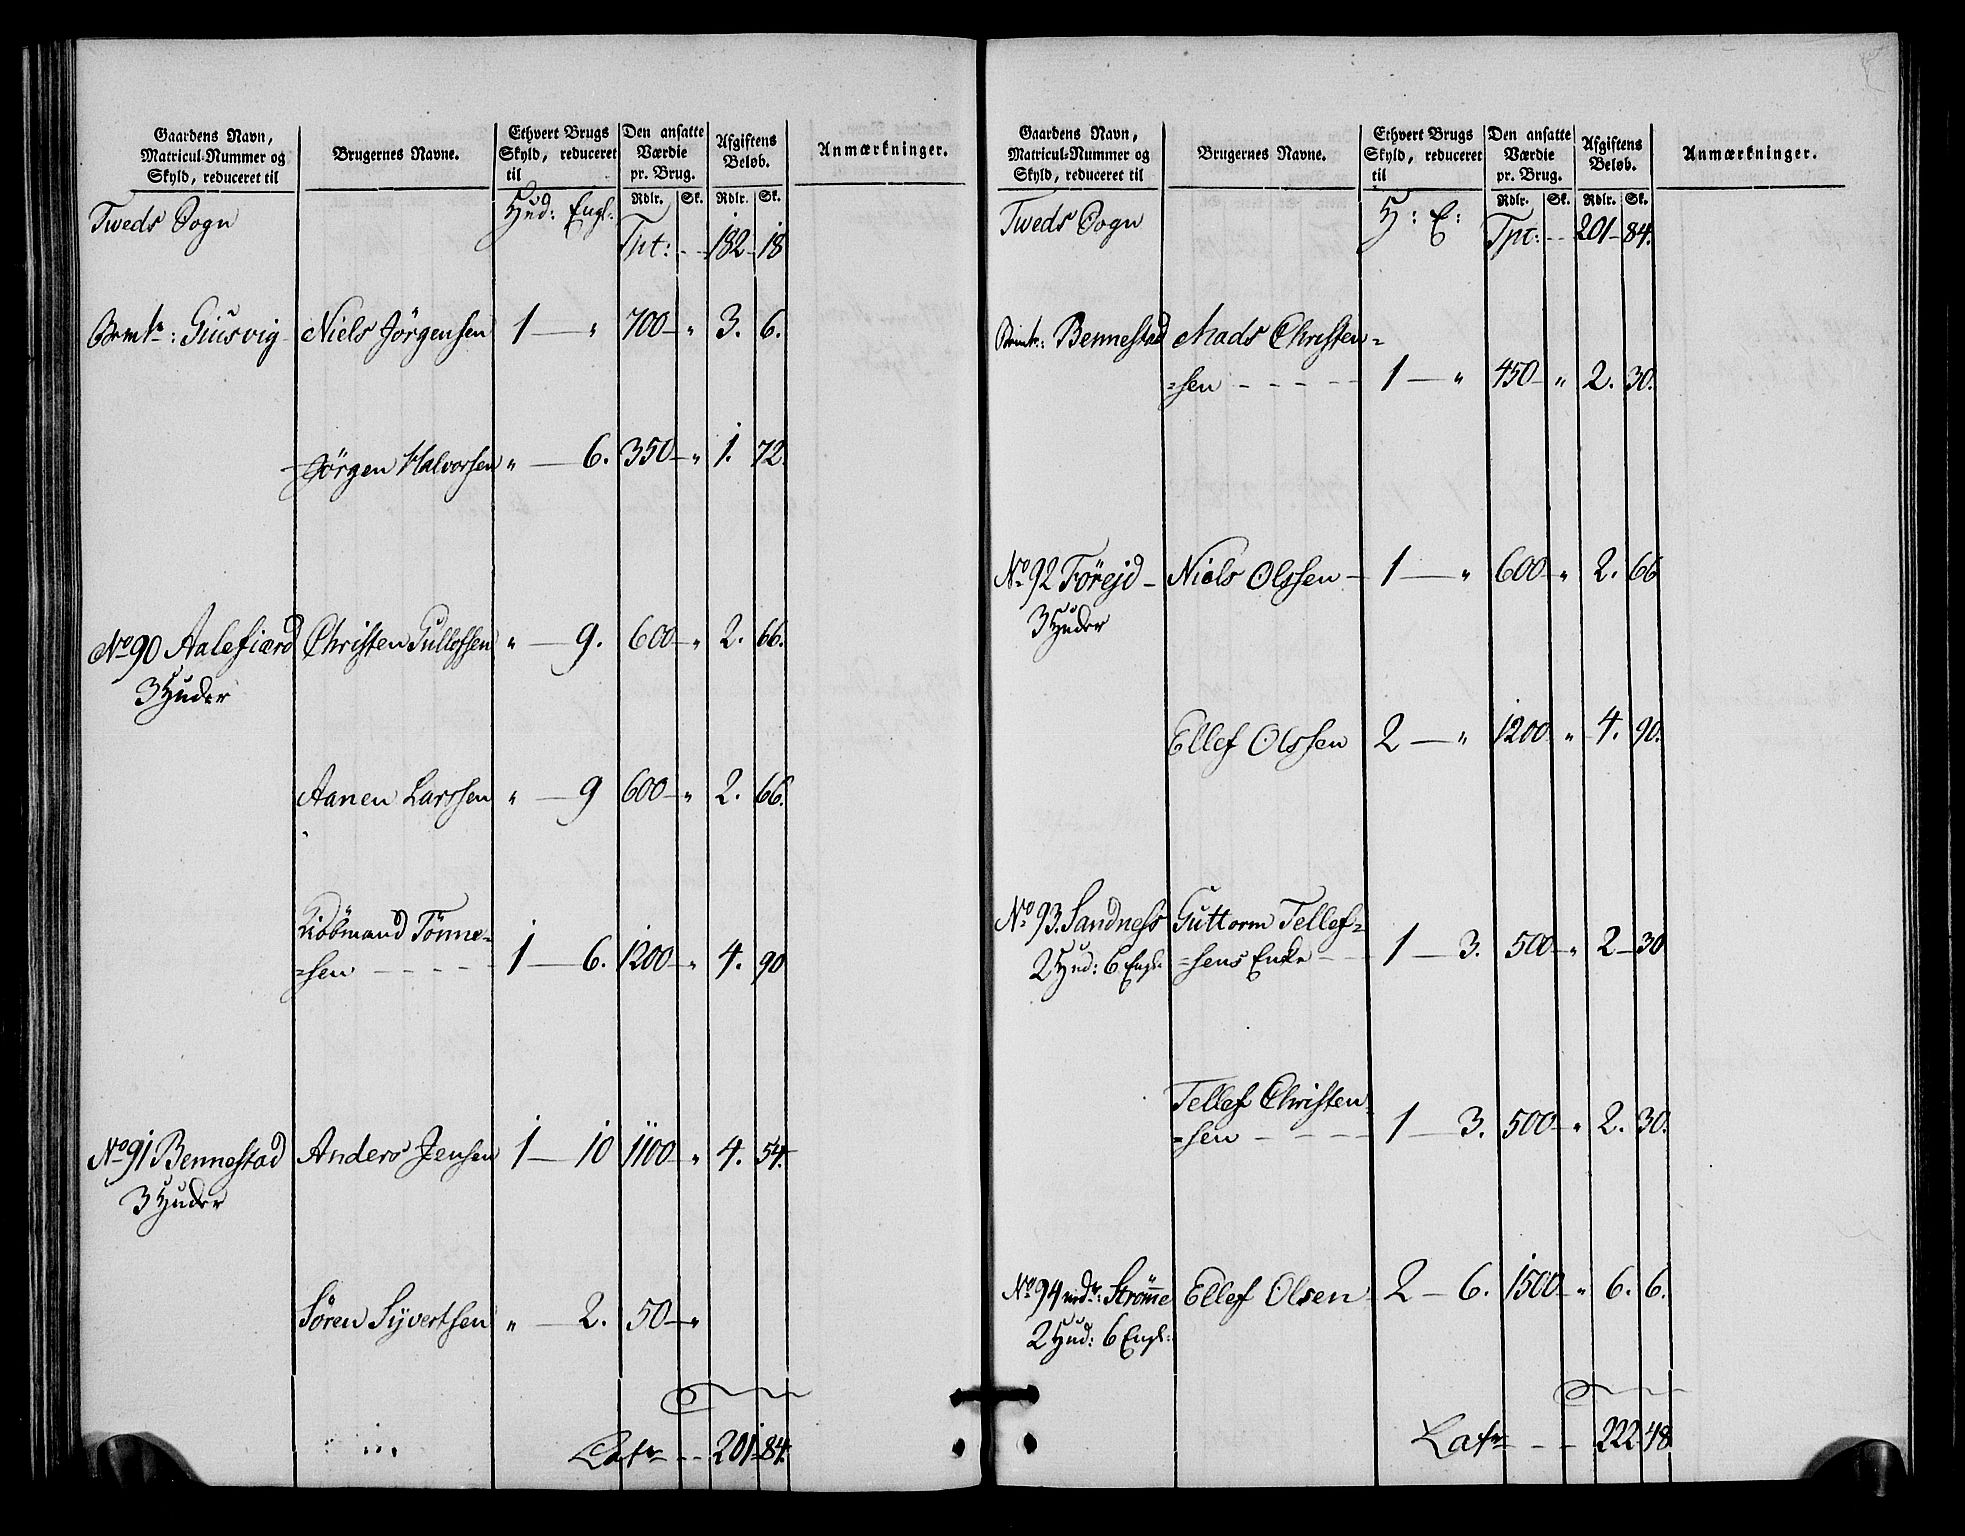 Gaardens Navn, Matricul-Nummer og Skyld, reduceret til | Brugernes Navne. | Ethvert Brugs Skyld, reduceret til | Den ansatte Værdie pr. Brug. | Afgiftens Beløb. | Anmærkninger.
Rdlr. Sk. Rdlr. Sk.
Tweds Sogn Hud: Engl:
Tpt: - - 182 - 18
Niels Jörgensen 1 — " 700 — " 3. 6.
Jörgen Halvorsen " — 6. 350 — " 1. 72.
No 90 Aalefiærd Christen Gullofsen " — 9. 600 — " 2. 66.
3 Huder
Aanen Larssen " — 9 600 — " 2. 66.
Kiöbmand Tönne=
=sen - - - - - 1 — 6. 1200 — " 4. 90
No 91 Bennestad Anders Jensen 1 — 10 1100 — " 4. 54.
3 Huder
Sören Sÿvertsen " — 2. 50 — "
Latr - - 201 - 84.
Gaardens Navn, Matricul-Nummer og Skyld, reduceret til | Brugernes Navne. | Ethvert Brugs Skyld, reduceret til | Den ansatte Værdie pr. Brug. | Afgiftens Beløb. | Anmærkninger.
Rdlr. Sk. Rdlr. Sk.
Tweds Sogn H: E:
Tpt: - - 201 - 84.
Bennestad Mads Christen=
=sen - - - - - 1 — " 450 — " 2. 30.
No 92 Törejd - Niels Olssen - 1 — " 600 — " 2. 66
3 Huder
Ellef Olssen 2 — " 1200 " 4. 90.
No 93. Sandness Guttorm Tellef=
2 Hud: 6 Engl: =sens Enke - - 1 — 3. 500 — " 2 — 30
Tellef Christen
=sen - - - - - 1 — 3. 500 — " 2. 30.
No 94 nedr: Strömme Ellef Olsen - 2 — 6. 1500 — " 6. 6.
2 Hud: 6 Engl:
Latr - - - 222 48